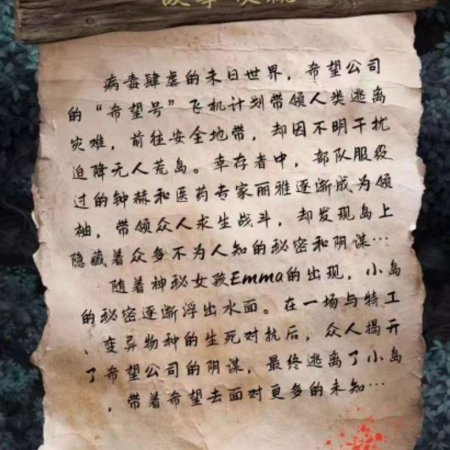 病毒肆虐的末日世界，希望公司
的“希望号”飞机计划带领人类逃离
灾难，前往安全地带，却因不明干扰
迫降无人荒岛。幸存者中，部队服役
过的钟赫和医药专家丽雅逐渐成为领
袖，带领众人求生战斗，却发现岛上
隐藏着众多不为人知的秘密和阴谋…
随着神秘女孩Emma的出现，小岛
的秘密逐渐浮出水面。在一场与特工
、变异物种的生死对抗后，众人揭开
了希望公司的阴谋，最终逃离了小岛
，带着希望去面对更多的未知…